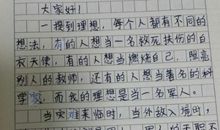 大家好！
一提到理想，每个人都有不同的
想法，有的人想当一名救死扶伤的白
衣天使，有的人想当燃烧自己，照亮
别人的教师，还有的人想当著名的科
学家，而我的理想是当一名军人。
当灾难来临时，当外敌入境时，